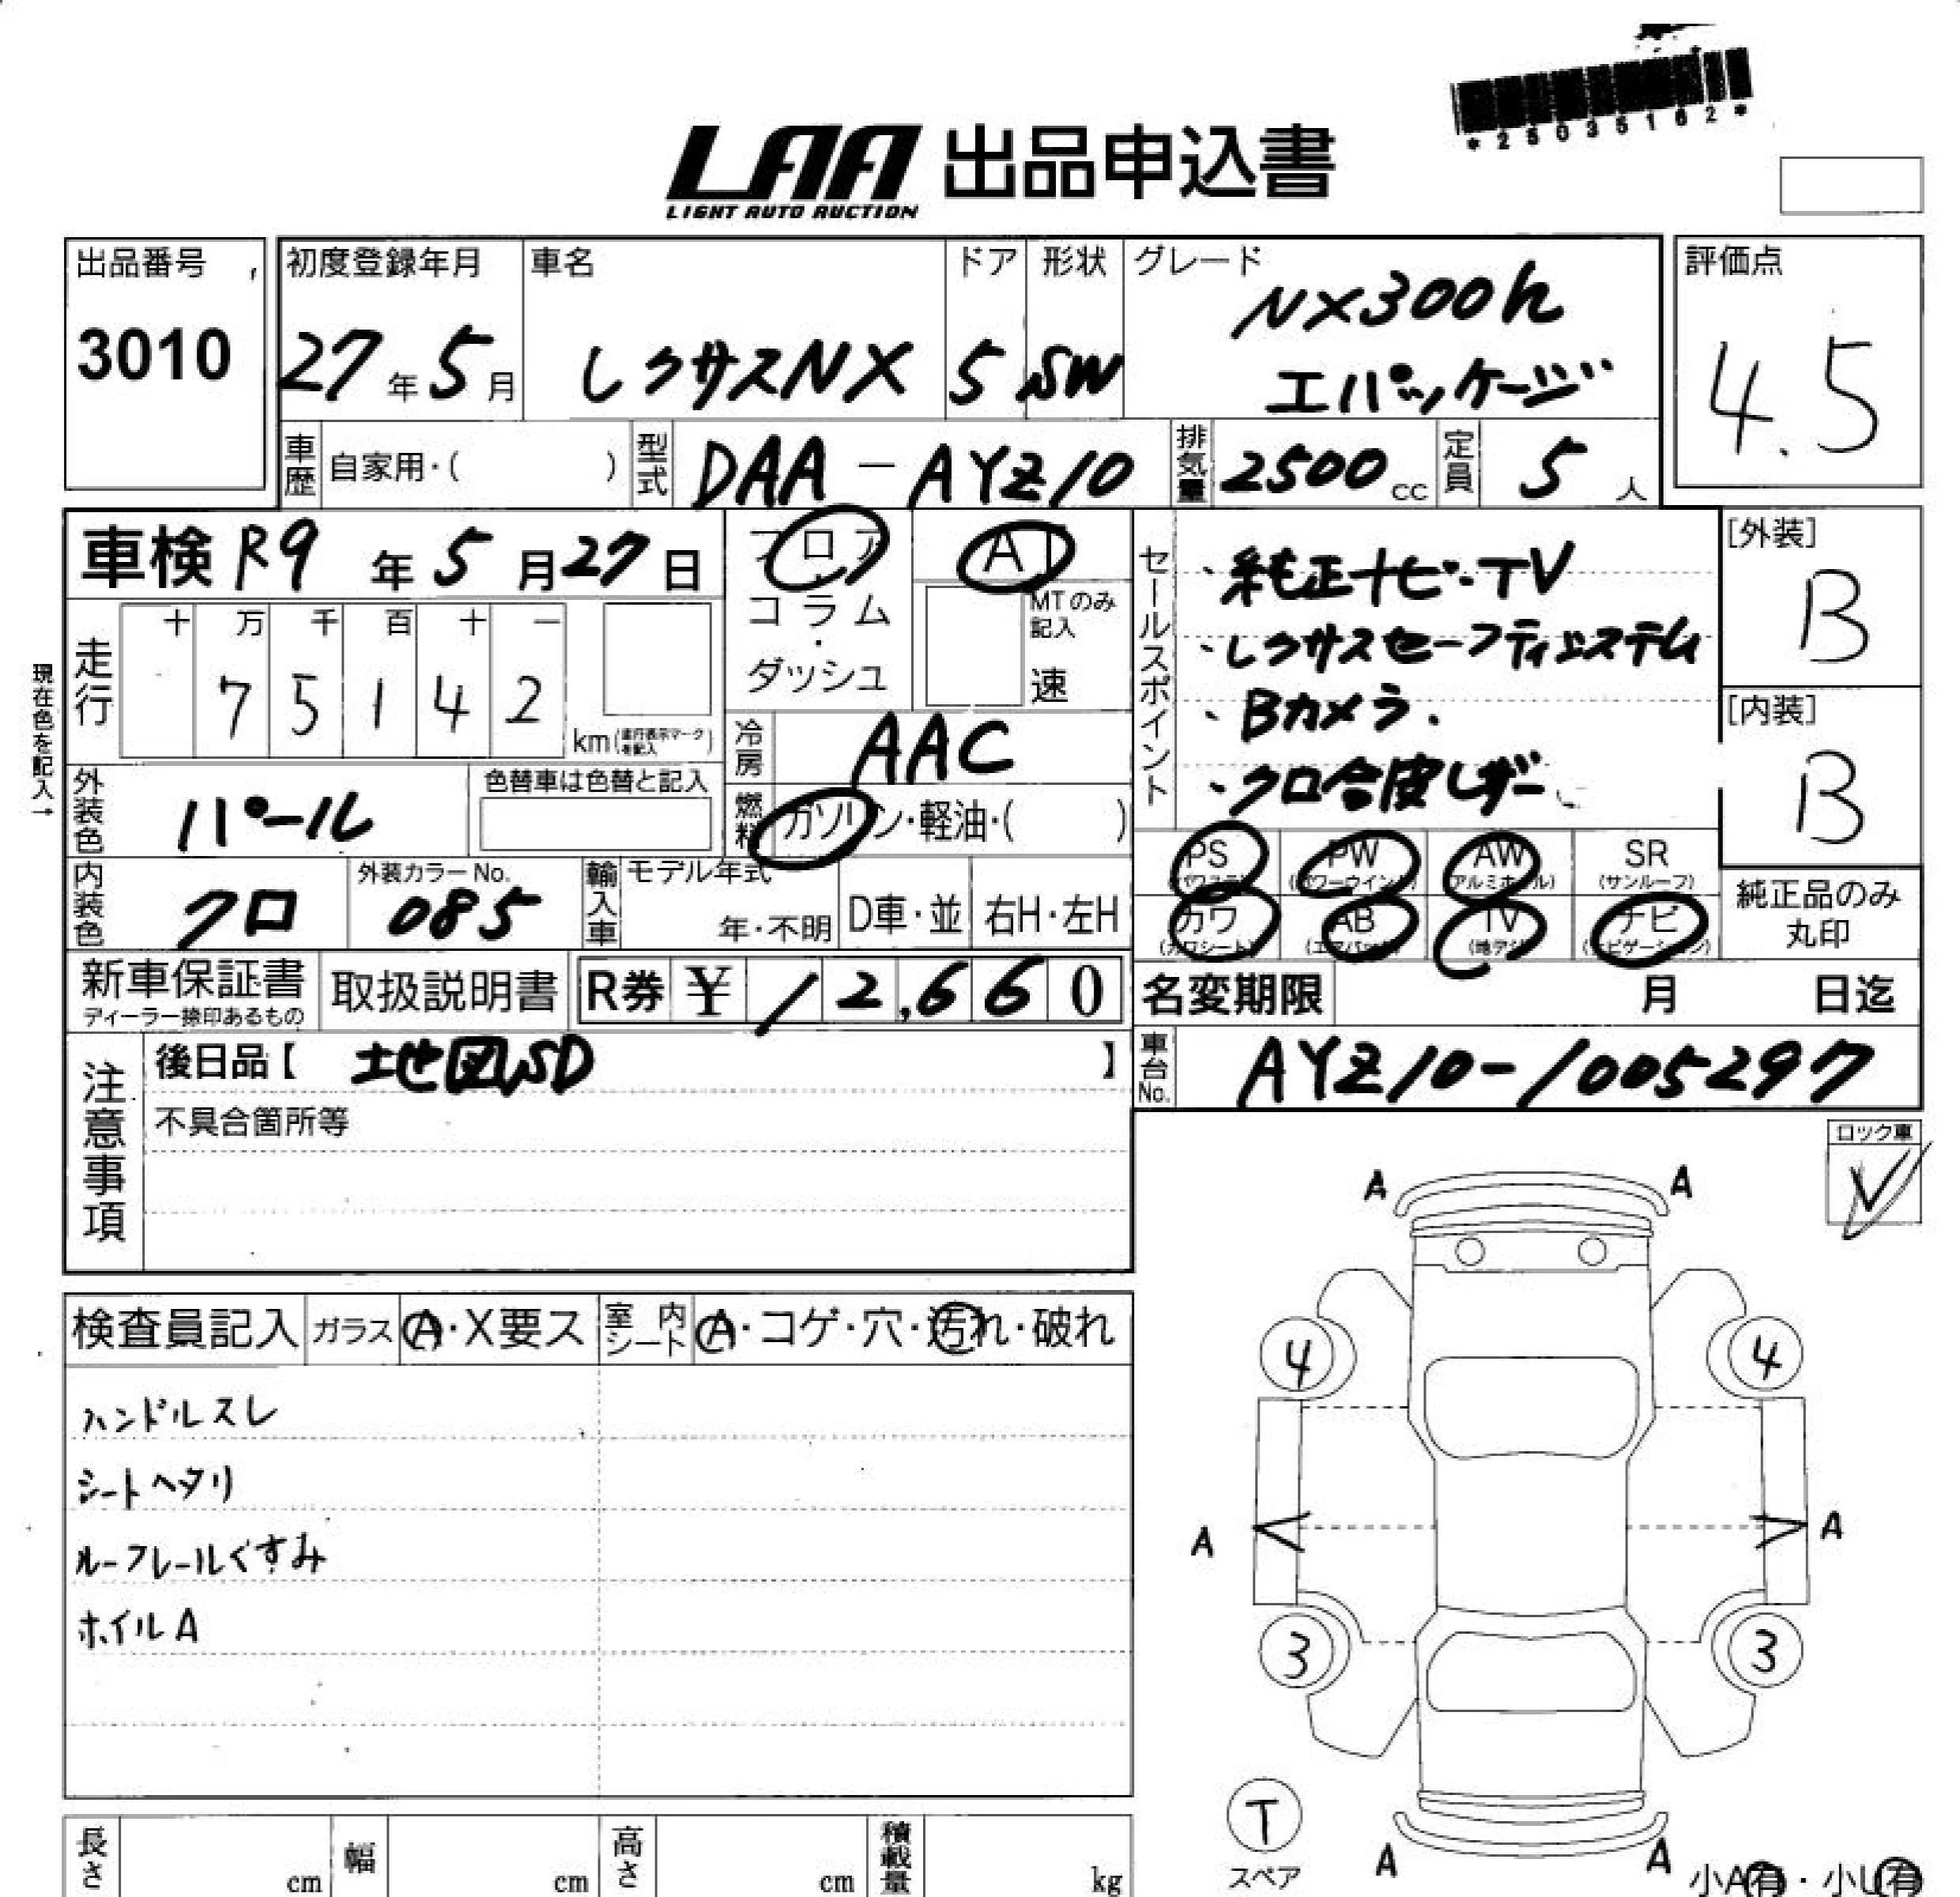 *25035162*
LAA 出品申込書
LIGHT AUTO AUCTION
出品番号
3010
初度登録年月
27年5月
車名
レクサスNX
ドア
5
形状
SW
グレード
NX300h
エパッケージ
評価点
4.5
車歴 自家用・( )
型式 DAA-AYZ10
排気量 2500cc
定員 5人
車検 R9年5月27日
フロア・コラム・ダッシュ
AT
MTのみ記入
速
走行
十 万 千 百 十 一
7 5 1 4 2
km(走行表示マークを記入)
現在色を記入→
外装色 パール
色替車は色替と記入
内装色 クロ
外装カラーNo.
085
冷房 AAC
燃料 ガソリン・軽油・( )
輸入車
モデル年式
年・不明
D車・並
右H・左H
セールスポイント
・純正ナビ・TV
・レクサスセーフティシステム
・Bカメラ.
・クロ合皮レザー
[外装]
B
[内装]
B
PS
(パワステ)
PW
(パワーウインド)
AW
(アルミホイル)
SR
(サンルーフ)
カワ
(カワシート)
AB
(エアバック)
TV
(地デジ)
ナビ
(ナビゲーション)
純正品のみ
丸印
新車保証書
ディーラー捺印あるもの
取扱説明書
R券 ¥12,660
名変期限 月 日迄
注意事項
後日品【 地図SD 】
不具合箇所等
車台No. AYZ10-1005297
ロック車
検査員記入
ガラス A・X要ス
室内シート A・コゲ・穴・汚れ・破れ
ハンドルスレ
シートヘタリ
ルーフレールくすみ
ホイルA
A A
4 4
A A
3 3
T
スペア
A A
小A有・小U有
長さ cm
幅 cm
高さ cm
積載量 kg